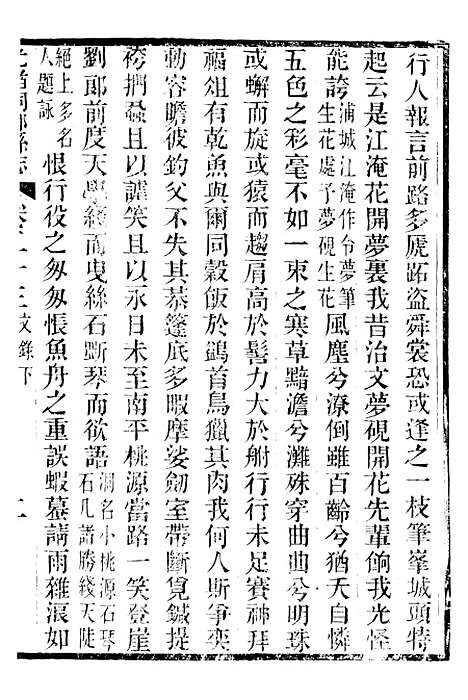 行人報言前路多虎跖盜舜裳恐或逢之一枝筆峯城頭特
起云是江淹花開夢裏我昔治文夢硯開花先輩餉我光怪
能誇浦城江淹作令夢筆生花處予夢硯生花風塵兮潦倒雖百齡兮猶夭自憐
五色之彩毫不如一束之寒草黯澹兮灘殊穿曲曲兮明珠
或蟹而旋或猿而趨肩高於髻力大於舢行行未足賽神拜
福俎有乾魚與爾同穀飯於鷁首鳥獵其肉我何人斯爭奕
勒容瞻彼釣父不失其恭篷底多暇摩娑劒室帶斷覓鍼提
袴捫蝨且以謔笑且以永日未至南平桃源當路一笑登崖
劉郎前度天學綫而曳絲石斷琴而欲語洞名小桃源石琴石几諸勝綫天陡
絕上多名人題詠恨行役之匆匆悵魚舟之重誤蝦蟇請雨雜浪如
文錄下